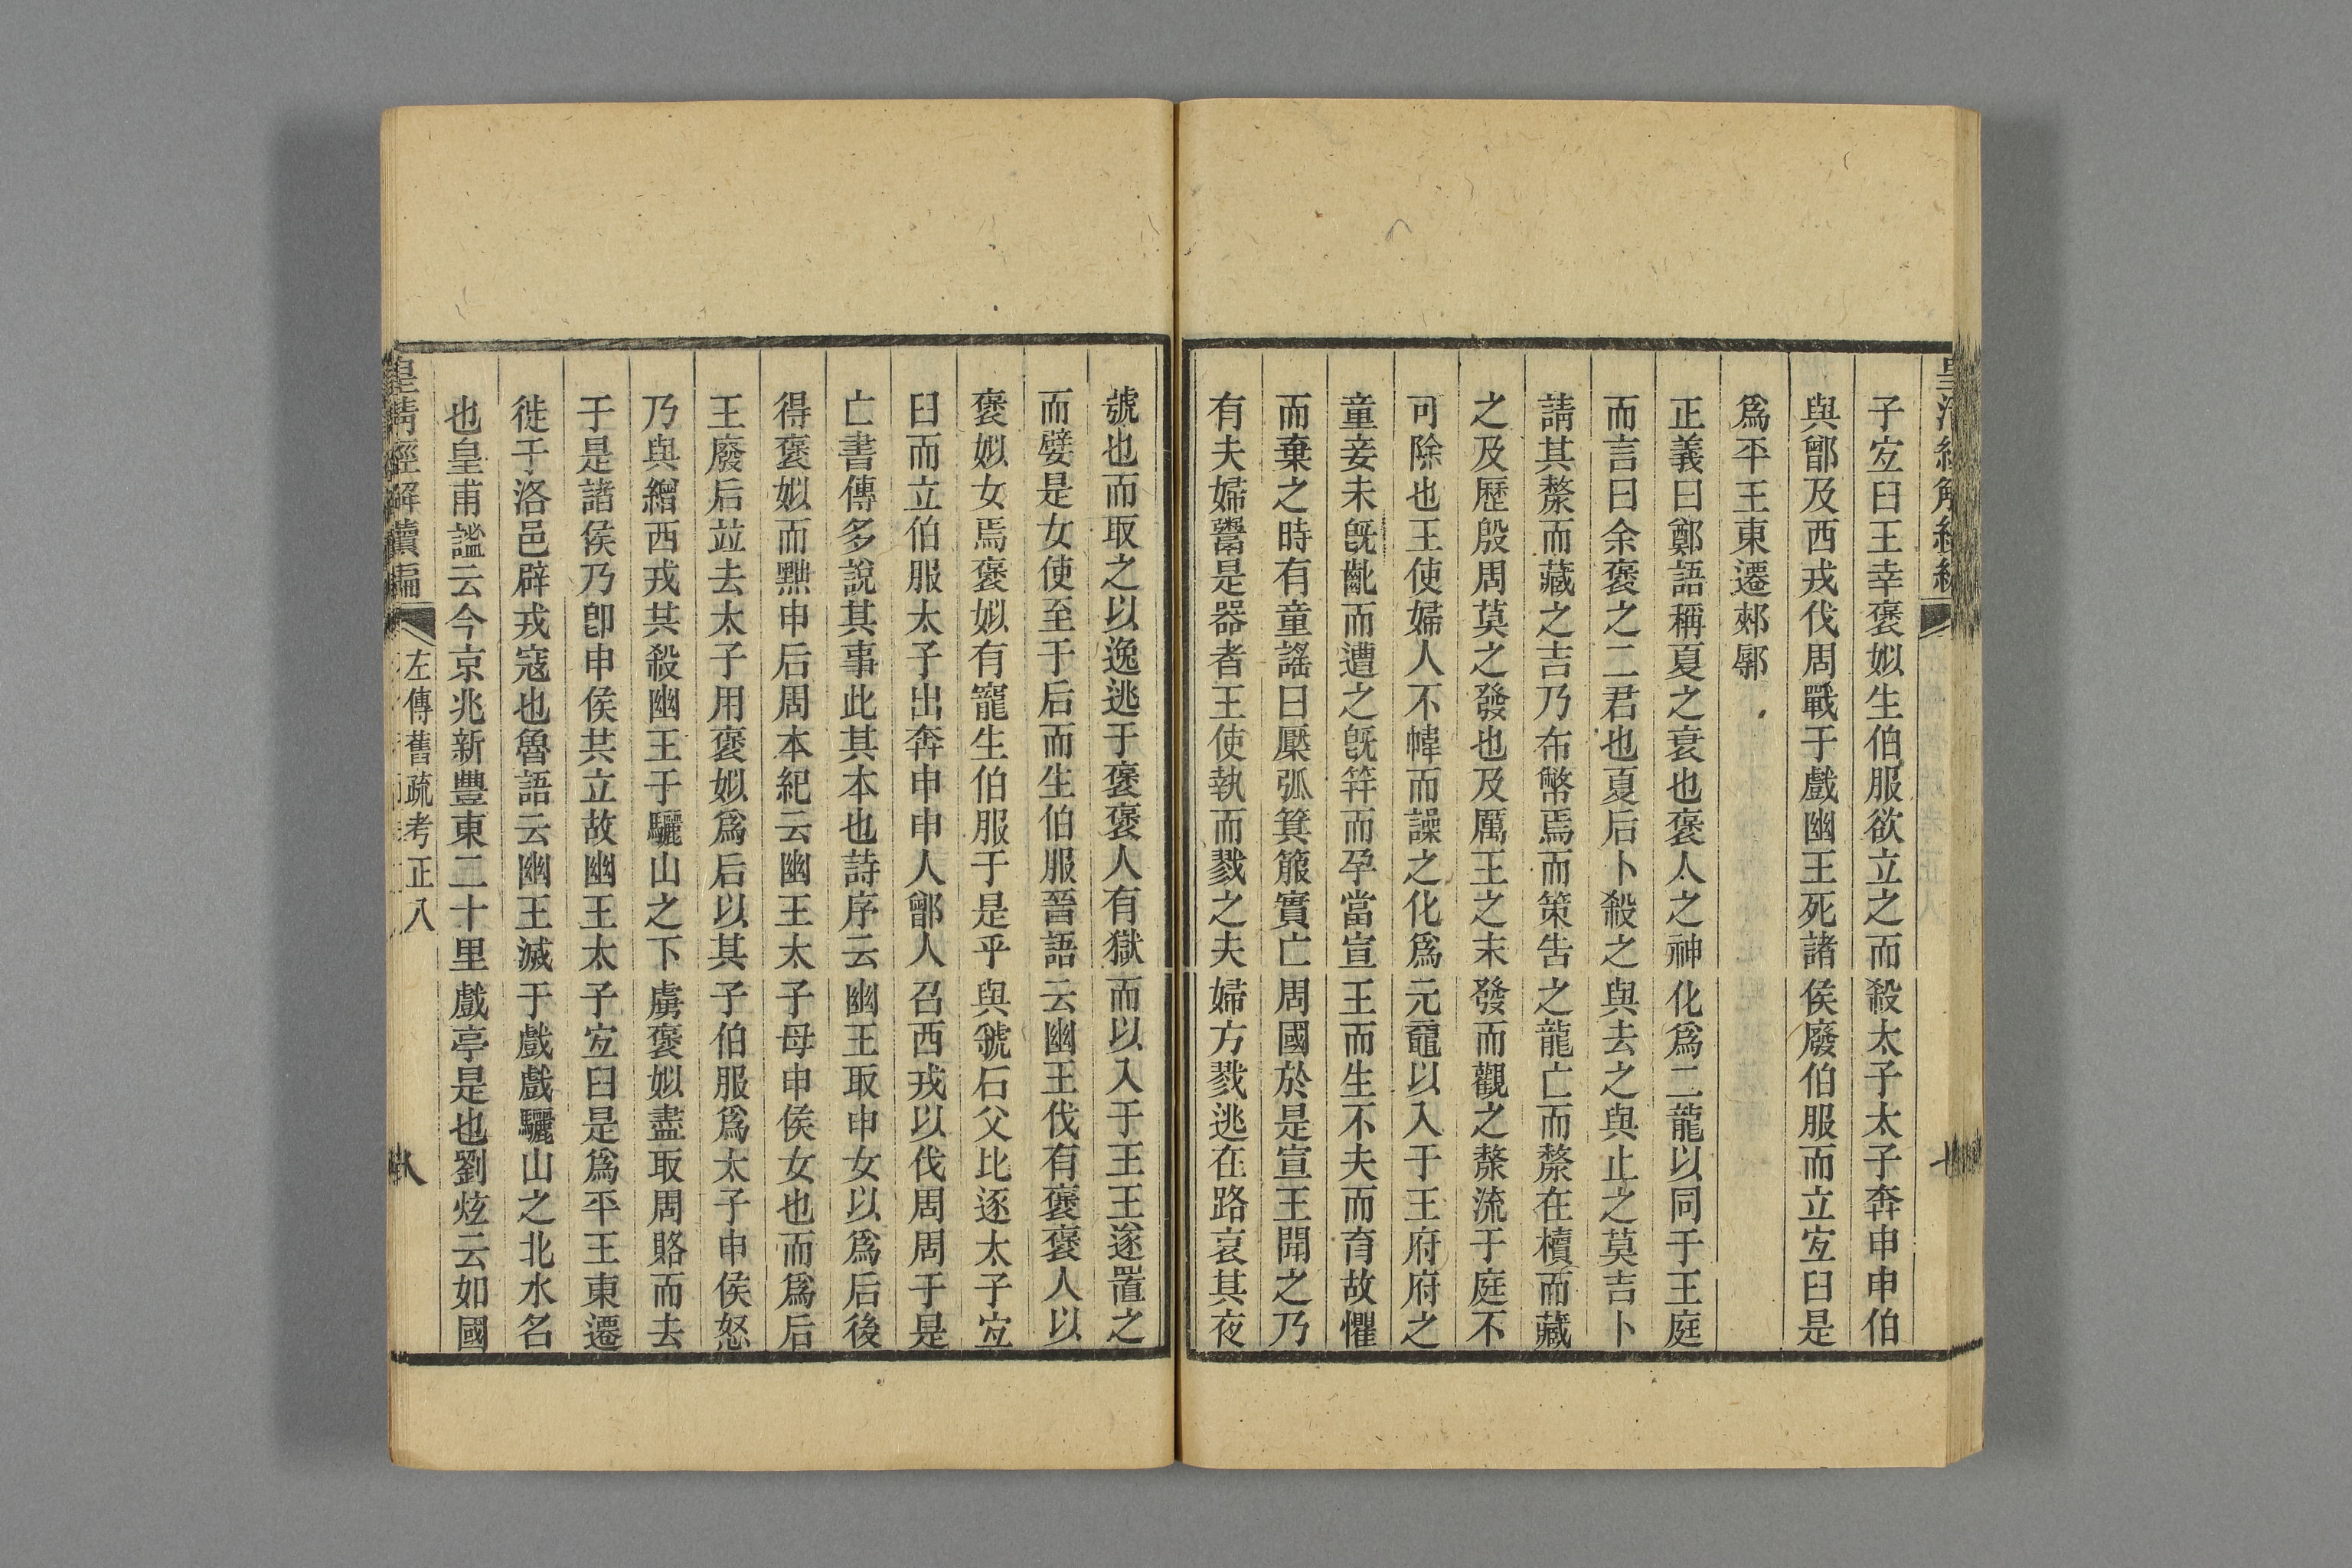 子宐臼王幸褒姒生伯服欲立之而殺太子太子奔申申伯
與鄫及西戎伐周戰于戲幽王死諸侯廢伯服而立宐臼是
爲平王東遷郟鄏
正義曰鄭語稱夏之衰也褒人之神化爲二龍以同于王庭
而言曰余褒之二君也夏后卜殺之與去之與止之莫吉卜
請其漦而藏之吉乃布幣焉而策告之龍亡而漦在櫝而藏
之及歷殷周莫之發也及厲王之末發而觀之漦流于庭不
可除也王使婦人不幃而譟之化爲元黿以入于王府府之
童妾未旣齓而遭之旣筓而孕當宣王而生不夫而育故懼
而棄之時有童謠曰檿弧箕箙實亡周國於是宣王聞之乃
有夫婦鬻是器者王使執而戮之夫婦方戮逃在路哀其夜
號也而取之以逸逃于褒褒人有獄而以入于王王遂置之
而嬖是女使至于后而生伯服晉語云幽王伐有褒褒人以
褒姒女焉褒姒有寵生伯服于是乎與虢石父比逐太子宐
臼而立伯服太子出奔申申人鄫人召西戎以伐周周于是
亡書傳多說其事此其本也詩序云幽王取申女以爲后後
得褒姒而黜申后周本紀云幽王太子母申侯女也而爲后
王廢后竝去太子用褒姒爲后以其子伯服爲太子申侯怒
乃與繒西戎共殺幽王于驪山之下虜褒姒盡取周賂而去
于是諸侯乃卽申侯共立故幽王太子宐臼是爲平王東遷
徙于洛邑辟戎寇也魯語云幽王滅于戲戲驪山之北水名
也皇甫謐云今京兆新豐東二十里戲亭是也劉炫云如國
皇清經解續編
左傳舊疏考正八
八